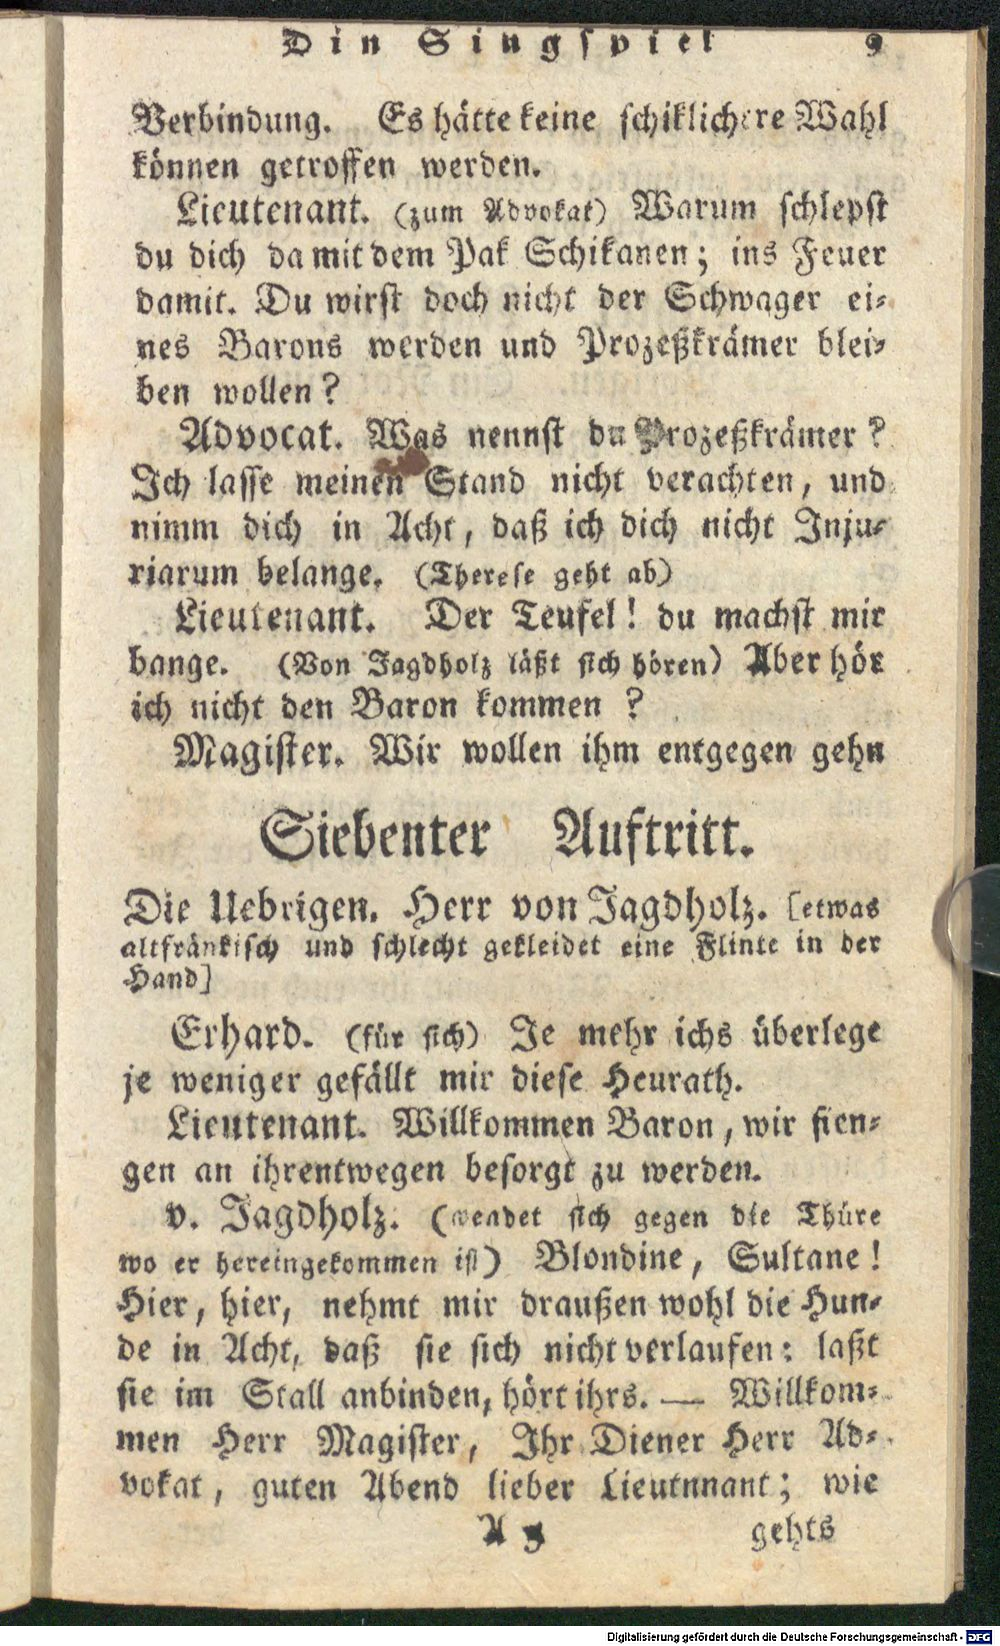 Din Singspiel 9
Verbindung. Es hätte keine schiklichere Wahl
können getroffen werden.
Lieutenant. (zum Advokat) Warum schlepst
du dich da mit dem Pak Schikanen; ins Feuer
damit. Du wirst doch nicht der Schwager ei-
nes Barons werden und Prozeßkrämer blei-
ben wollen?
Advocat. Was nennst du Prozeßkrämer?
Ich lasse meinen Stand nicht verachten, und
nimm dich in Acht, daß ich dich nicht Inju-
riarum belange. (Therese geht ab)
Lieutenant. Der Teufel! du machst mir
bange. (Von Jagdholz läßt sich hören) Aber hör
ich nicht den Baron kommen?
Magister. Wir wollen ihm entgegen gehn
Siebenter Auftritt.
Die Uebrigen. Herr von Jagdholz. [etwas
altfränkisch und schlecht gekleidet eine Flinte in der
Hand]
Erhard. (für sich) Je mehr ichs überlege
je weniger gefällt mir diese Heurath.
Lieutenant. Willkommen Baron, wir fien-
gen an ihrentwegen besorgt zu werden.
v. Jagdholz. (wendet sich gegen die Thüre
wo er hereingekommen ist) Blondine, Sultane!
Hier, hier, nehmt mir draußen wohl die Hun-
de in Acht, daß sie sich nicht verlaufen: laßt
sie im Stall anbinden, hört ihrs. — Willkom-
men Herr Magister, Ihr Diener Herr Ad-
vokat, guten Abend lieber Lieutnnant; wie
A 5 gehts
Digitalisierung gefördert durch die Deutsche Forschungsgemeinschaft - DFG